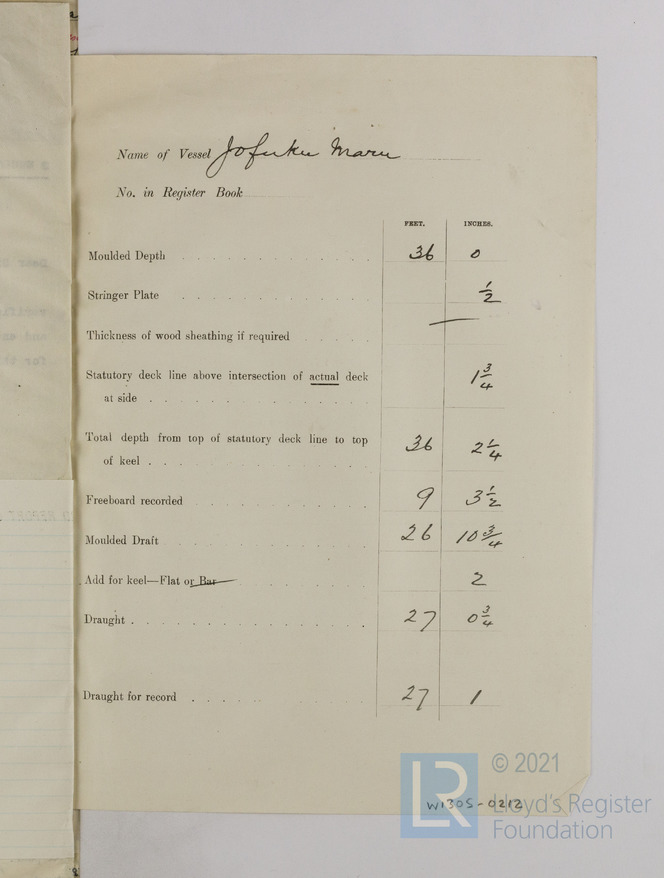 Name of Vessel Jofuku Maru
No. in Register Book
FEET. INCHES.
Moulded Depth 36 0
Stringer Plate 1/2
Thickness of wood sheathing if required —
Statutory deck line above intersection of actual deck
at side 1 3/4
Total depth from top of statutory deck line to top
of keel 36 2 1/4
Freeboard recorded 9 3 1/2
Moulded Draft 26 10 3/4
Add for keel—Flat or Bar 2
Draught 27 0 3/4
Draught for record 27 1
W1305-0212
LR © 2021
Lloyd's Register
Foundation